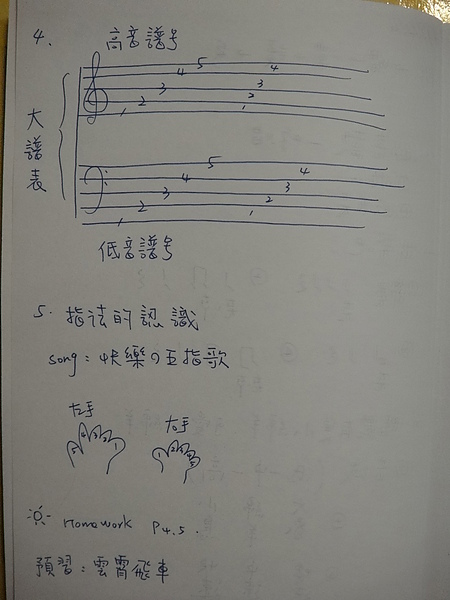 4. 高音譜号
5
4 4
3 3
2 2
1 1
大譜表
5
4 4
3 3
2 2
1 1
低音譜号
5. 指法的認識
song:快樂の五指歌
左手 右手
5 4 3 2 1 1 2 3 4 5
Homework P4.5.
預習:雲霄飛車